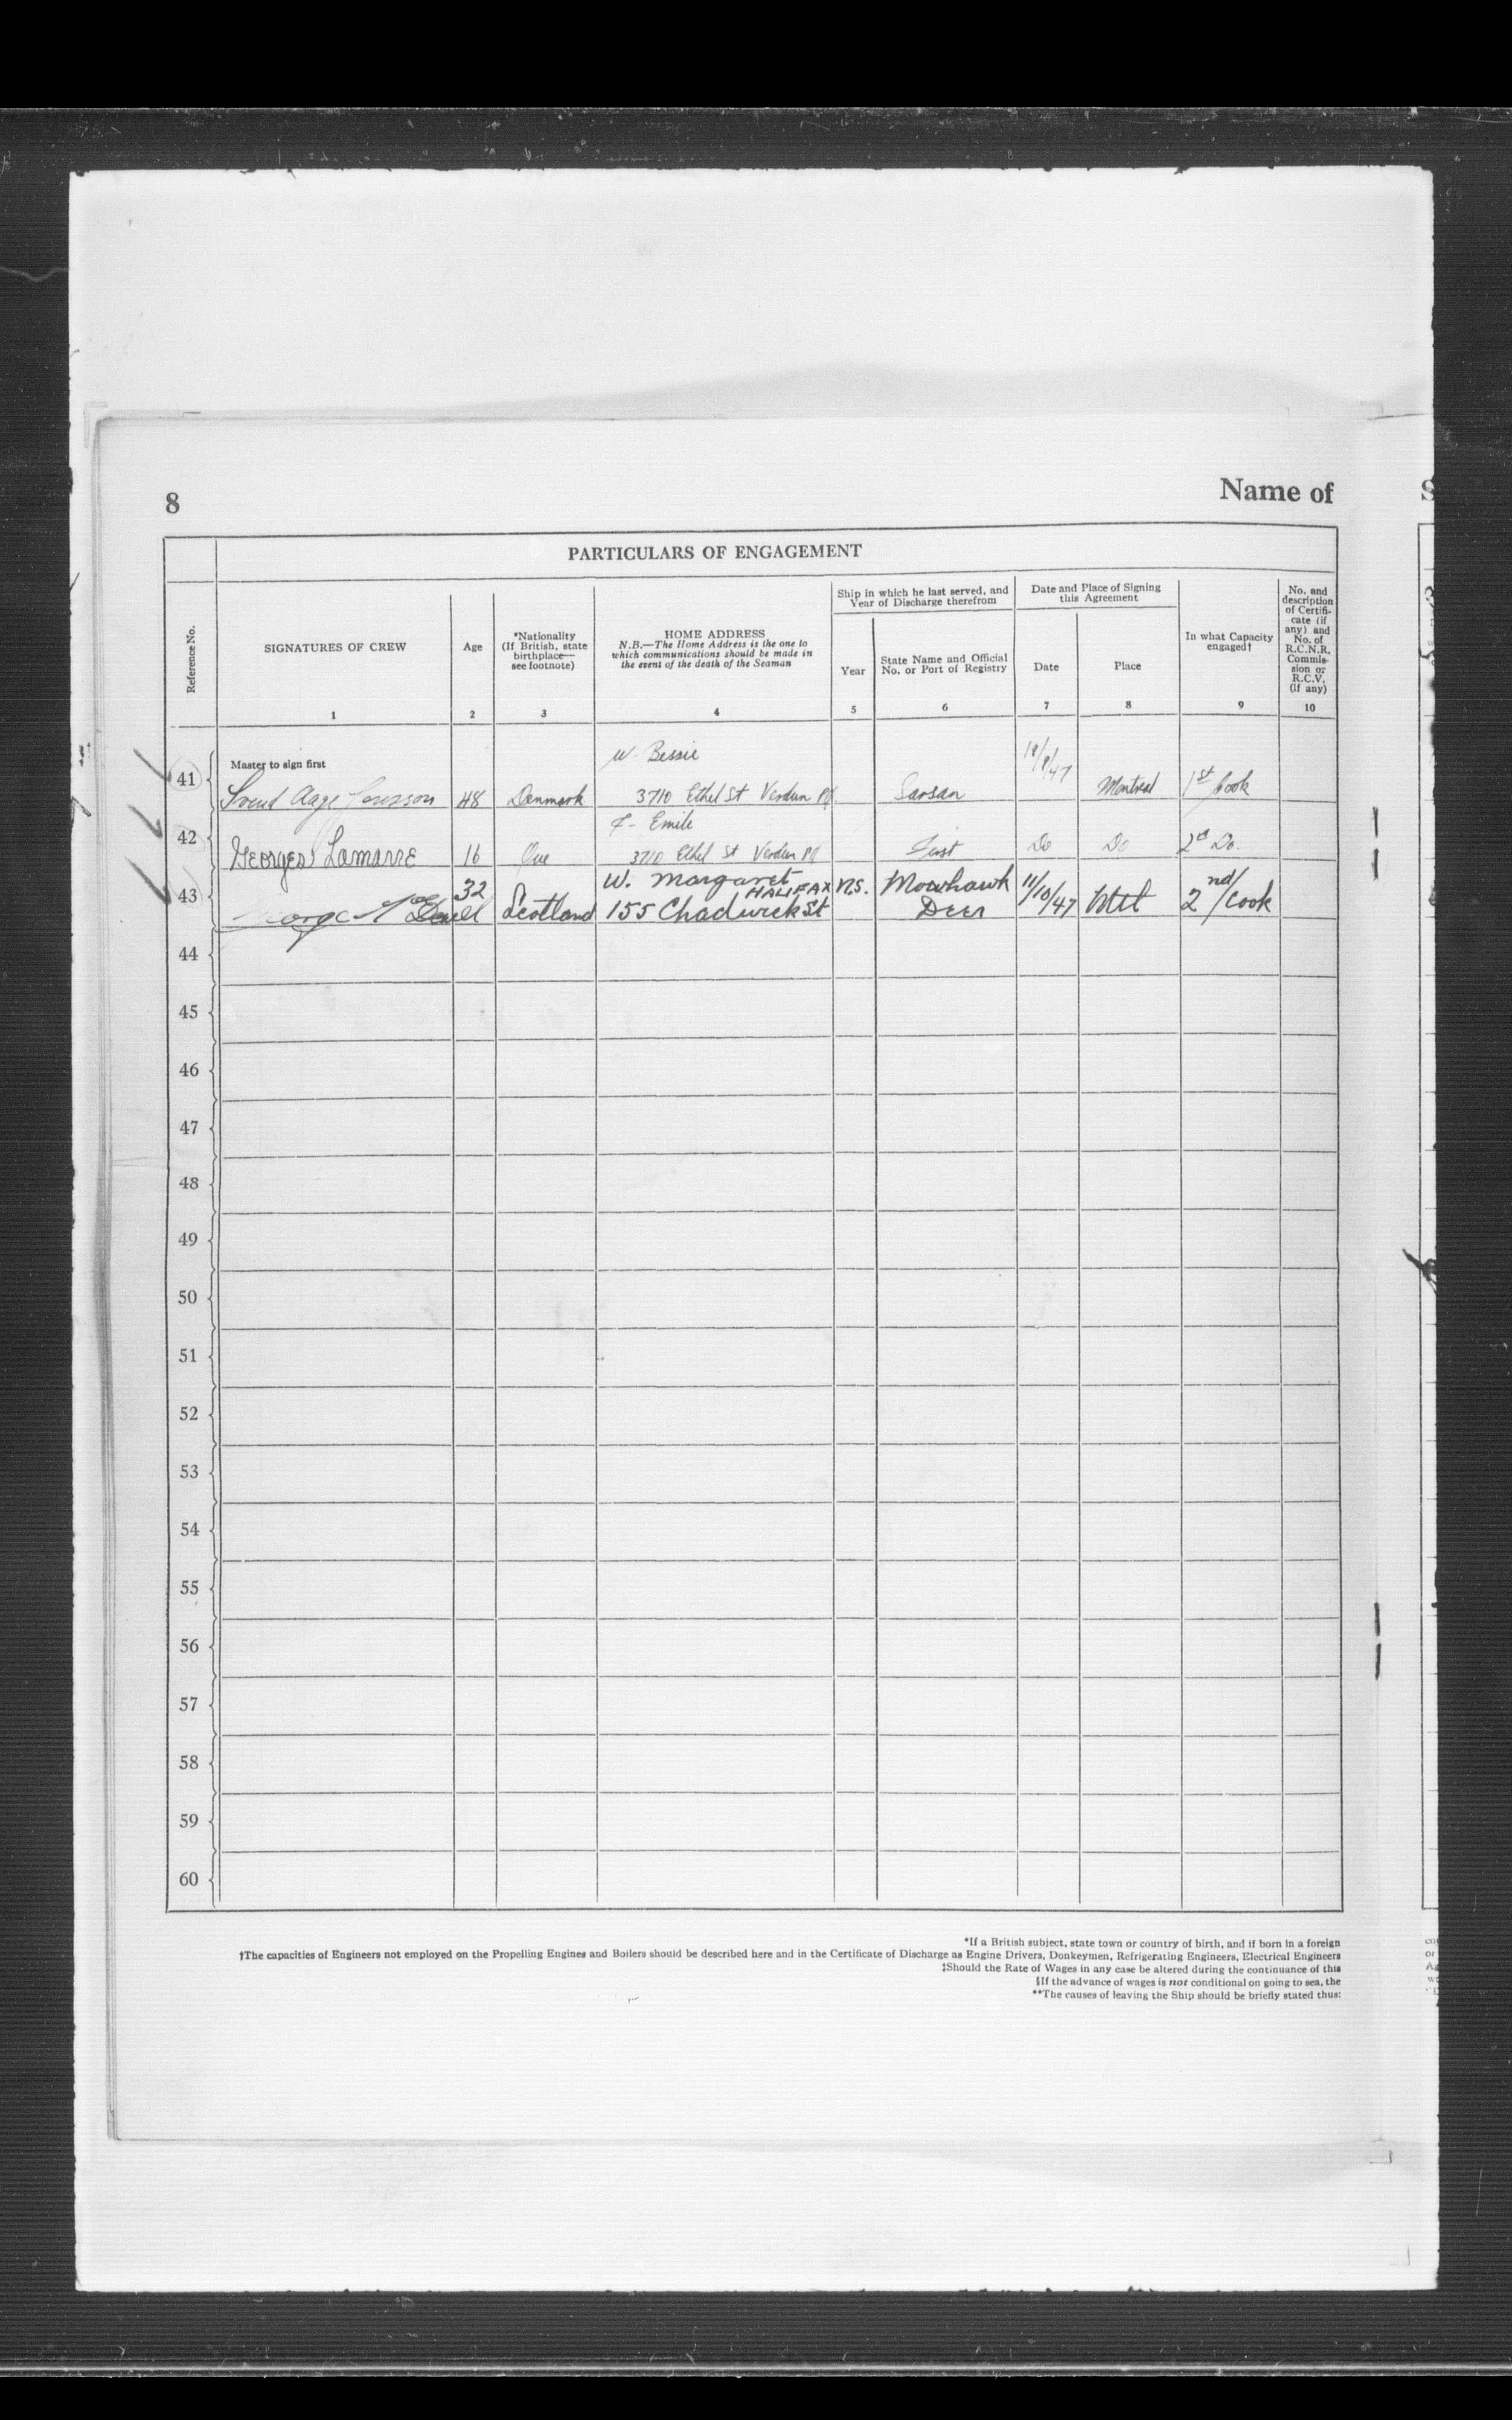 8 Name of
PARTICULARS OF ENGAGEMENT
Reference No.
SIGNATURES OF CREW
1
Age
2
*Nationality
(If British, state
birthplace—
see footnote)
3
HOME ADDRESS
N.B.—The Home Address is the one to
which communications should be made in
the event of the death of the Seaman
4
Ship in which he last served, and
Year of Discharge therefrom
Year
5
State Name and Official
No. or Port of Registry
6
Date and Place of Signing
this Agreement
Date
7
Place
8
In what Capacity
engaged†
9
No. and
description
of Certifi-
cate (if
any) and
No. of
R.C.N.R.
Commis-
sion or
R.C.V.
(if any)
10
Master to sign first
W. Bessie
41 Aage 48 Denmark 3710 Ethel St Verdun PQ Sarsan Montreal 1st Cook
F- Emile
42 Georges Lamarre 16 Que 3710 Ethel St Verdun PQ First Do Do 2d Do.
W. Margaret
HALIFAX N.S.
43 George 32 Scotland 155 Chadwick St Mowhawk Deer 11/10/47 Mtl 2nd/Cook
44
45
46
47
48
49
50
51
52
53
54
55
56
57
58
59
60
*If a British subject, state town or country of birth, and if born in a foreign
†The capacities of Engineers not employed on the Propelling Engines and Boilers should be described here and in the Certificate of Discharge as Engine Drivers, Donkeymen, Refrigerating Engineers, Electrical Engineers
‡Should the Rate of Wages in any case be altered during the continuance of this
§If the advance of wages is not conditional on going to sea, the
**The causes of leaving the Ship should be briefly stated thus: